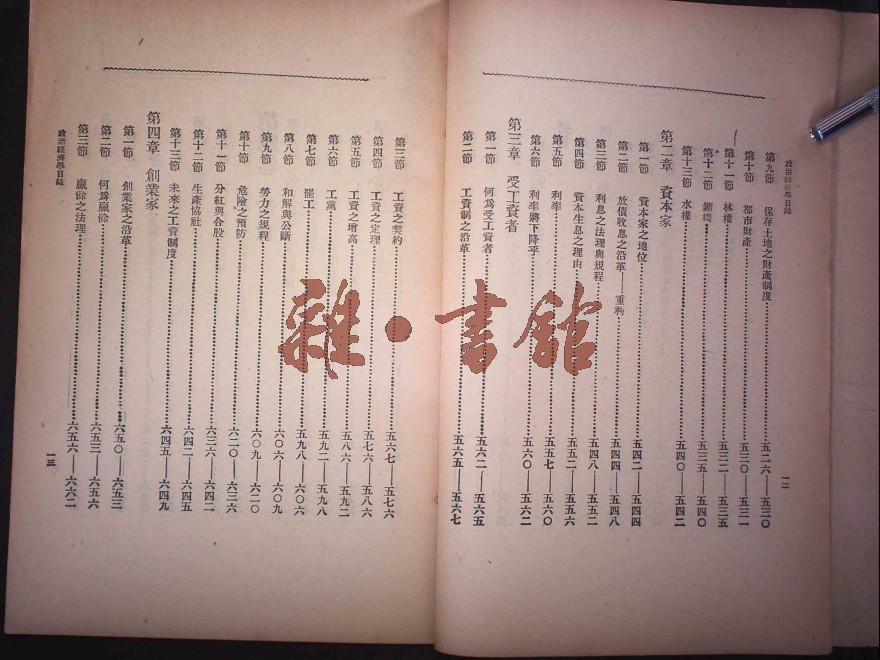 政治經濟學目錄
一二
第九節 保存土地之財產制度 五二六——五三〇
第十節 都市財產 五三〇——五三一
第十一節 林權 五三二——五三五
第十二節 鑛權 五三五——五四〇
第十三節 水權 五四〇——五四二
第二章 資本家
第一節 資本家之地位 五四二——五四四
第二節 放債收息之沿革——重利 五四四——五四八
第三節 利息之法理與規程 五四八——五五二
第四節 資本生息之理由 五五二——五五六
第五節 利率 五五七——五六〇
第六節 利率將下降乎 五六〇——五六二
第三章 受工資者
第一節 何爲受工資者 五六二——五六五
第二節 工資制之沿革 五六五——五六七
第三節 工資之契約 五六七——五七六
第四節 工資之定理 五七六——五八六
第五節 工資之增高 五八六——五九二
第六節 工黨 五九二——五九八
第七節 罷工 五九八——六〇六
第八節 和解與公斷 六〇六——六〇九
第九節 勞力之規程 六〇九——六二〇
第十節 危險之預防 六二〇——六三六
第十一節 分紅與合股 六三六——六四二
第十二節 生產協社 六四二——六四五
第十三節 未來之工資制度 六四五——六四九
第四章 創業家
第一節 創業家之沿革 六五〇——六五三
第二節 何爲贏餘 六五三——六五六
第三節 贏餘之法理 六五六——六六二
政治經濟學目錄
一三
雜·書館